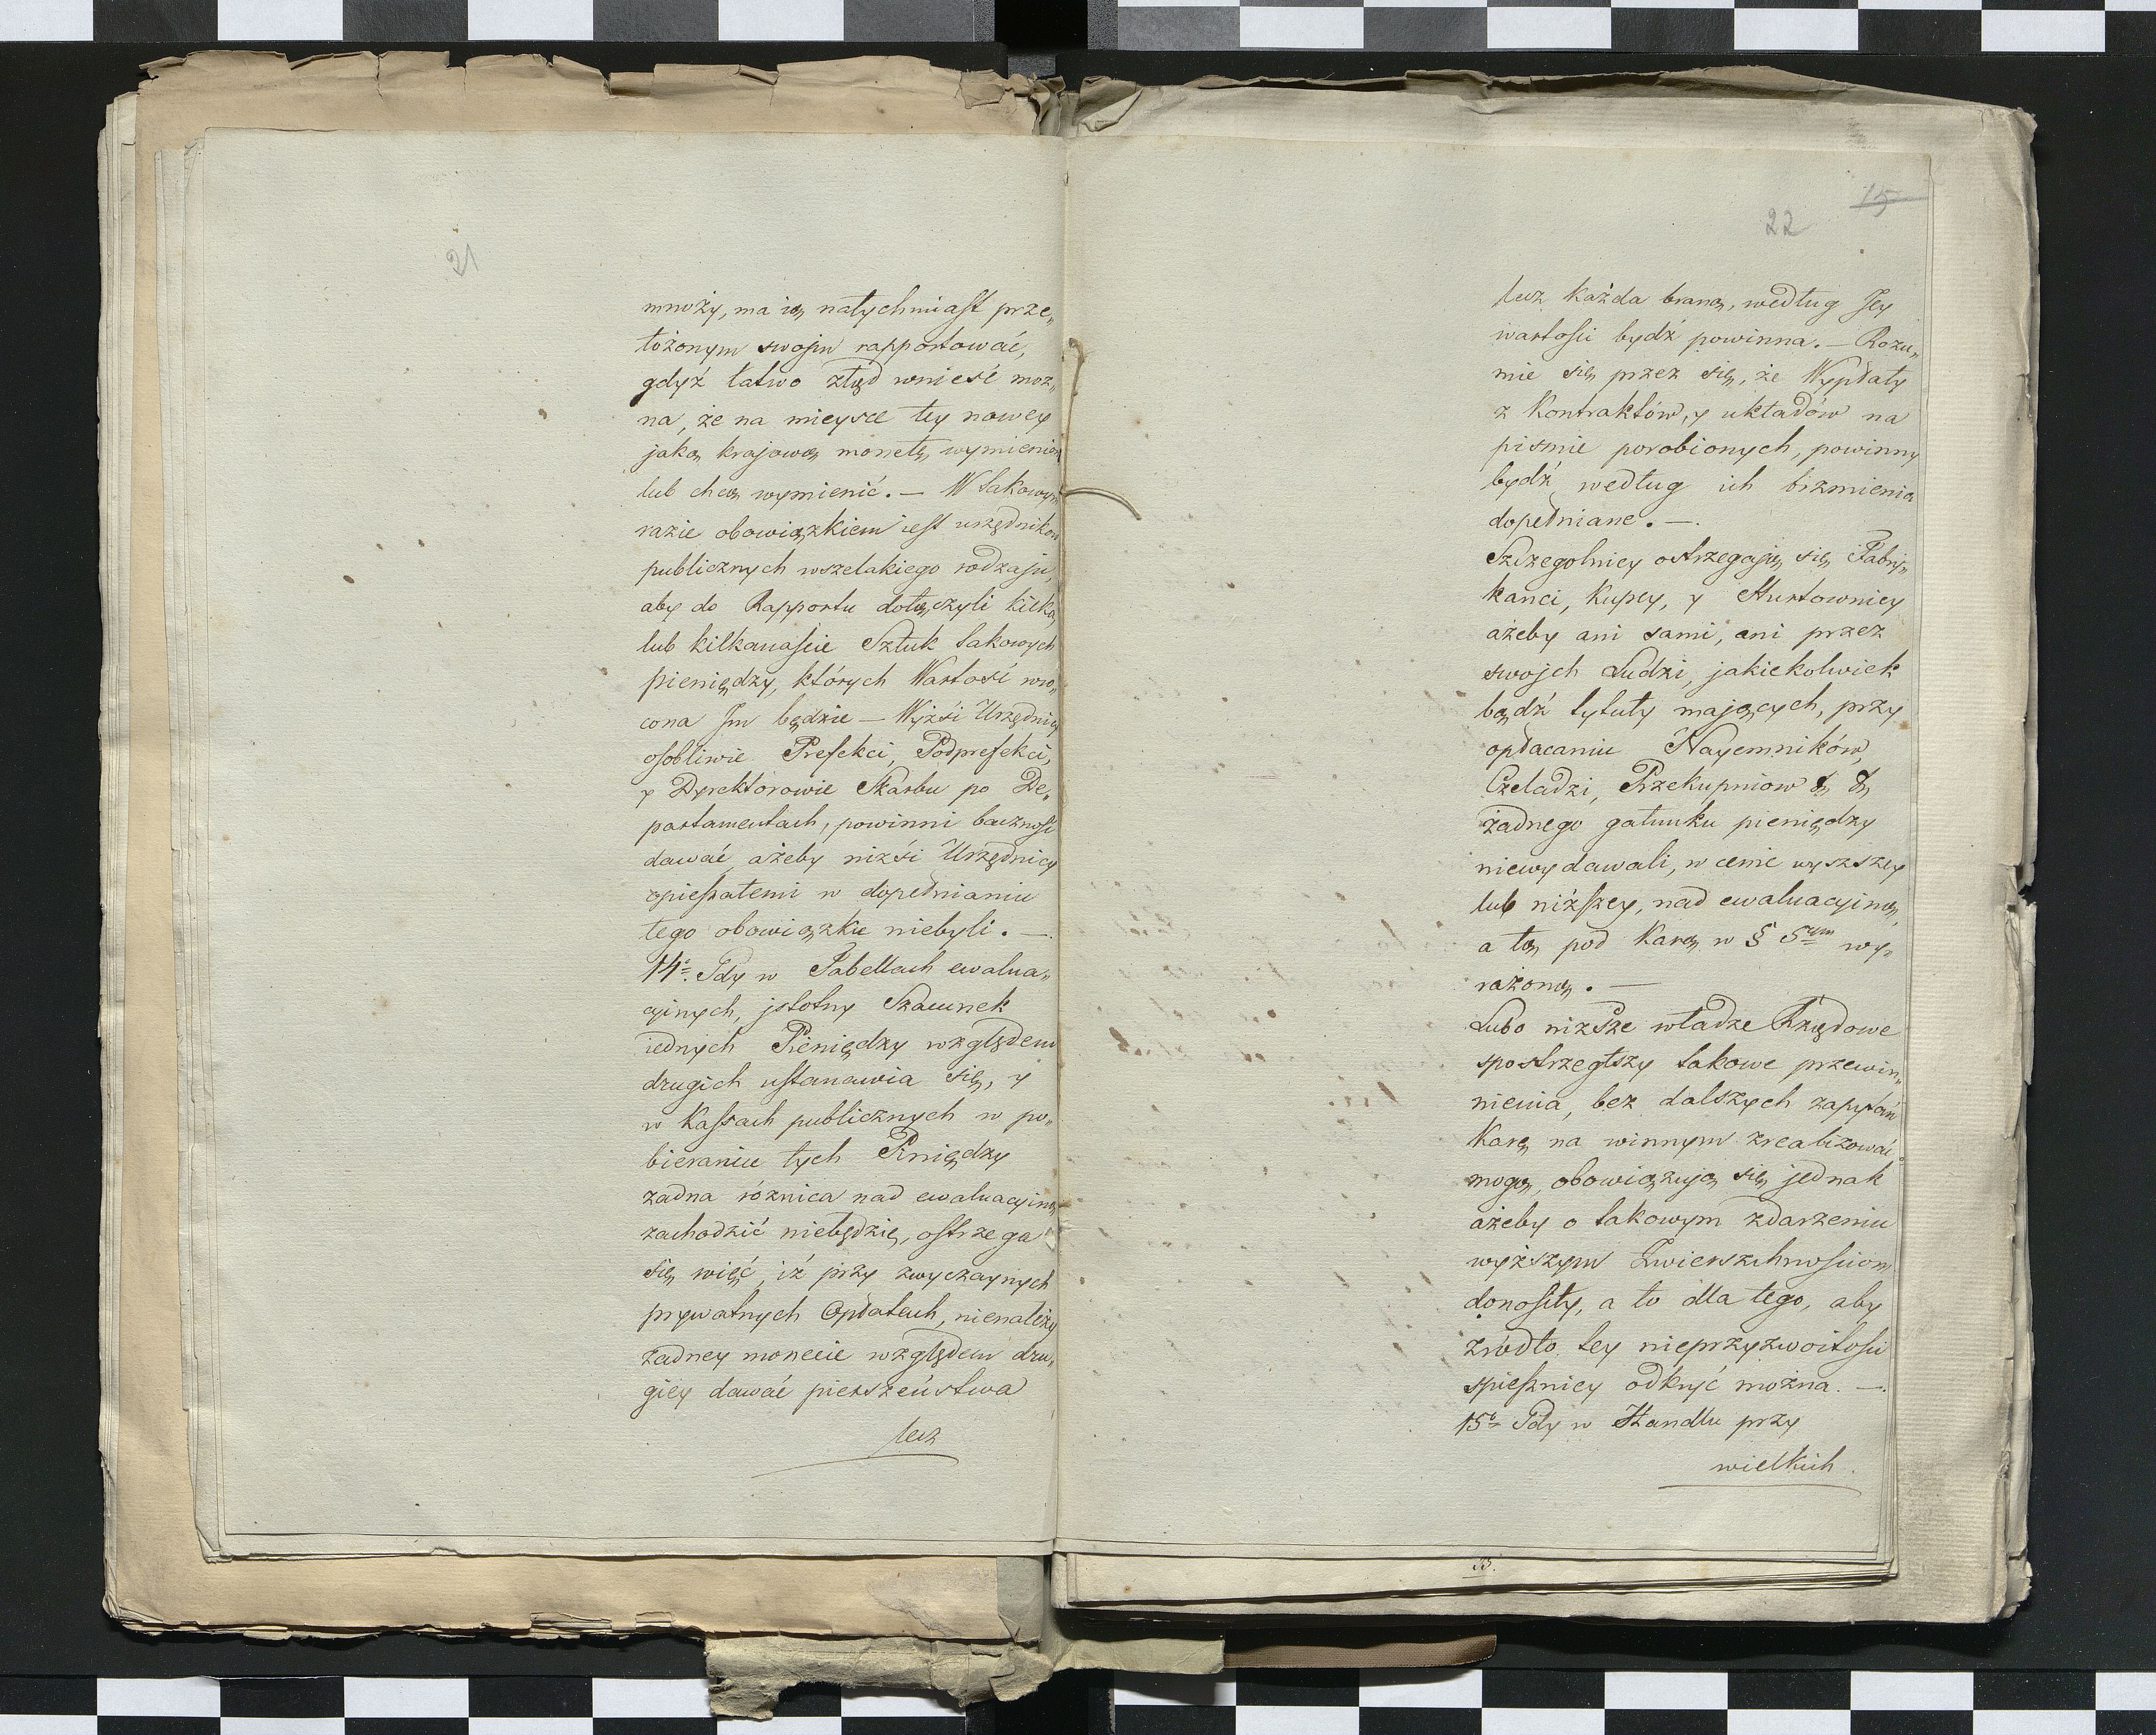 21
mnoży, ma ią natychmiast prze„
łożonym swojm rapportować,
gdyż łatwo ztąd wnieść moz„
na, że na mieysce tey nowey
jaką krajową monetę wymienion
lub chcą wymienić. — W takowym
razie obowiązkiem iest urzędnikow
publicznych wszelakiego rodzaju,
aby do Rapportu dołączyli kilka,
lub kilkanaście Sztuk takowych
pieniędzy, których Wartość wro„
cona Jm będzie — Wyżsi Urzędnicy
osobliwie Prefekci, Podprefekci,
y Dyrektorowie Skarbu po De„
partamentach, powinni baczność
dawać, ażeby niżsi Urzędnicy
opieszałemi w dopełnianiu
tego obowiązku niebyli. —
14º Gdy w Tabellach ewalua„
cyinych, jstotny Szacunek
iednych Pieniędzy względem
drugich ustanawia się, y
w Kassach publicznych w po„
bieraniu tych Piniędzy
zadna róznica nad ewaluacyiną
zachodzić niebędzie, ostrzega
się więć, iż przy zwyczaynych
prywatnych Opłatach, nienależy
żadney monecie względem dru„
giey dawać pierszeństwa
lecz
15
22
lecz każda braną, według Jey
wartości bydź powinna. — Rozu„
mie się przez się, że Wypłaty
z Kontraktów, y układów na
pismie porobionych, powinny
bydź według ich brzmienia
dopełniane. —.
Szczegolniey ostrzegają się Fabry„
kanci, Kupcy, y Hurtownicy
ażeby ani sami, ani przez
swojch Ludzi, jakiekolwiek
bądź tytuły mających, przy
opłacaniu Nayemników,
Czeladzi, Przekupniow & &
żadnego gatunku pieniędzy
niewydawali, w cenie wyszszey
lub niższey, nad ewaluacyiną,
a to, pod Karą w § 5tym wy„
rażoną. —
Lubo niższe władze Rządowe
spostrzegłszy takowe przewin„
nienia, bez dalszych zapytań
Karę na winnym zrealizować
mogą, obowiązują się jednak
ażeby o takowym zdarzeniu
wyższym Zwierzchnościom
donosiły, a to dla tego, aby
zrodło tey nieprzyzwoitości
spieszniey odkryć można. —.
15º Gdy w Handlu przy
wielkich